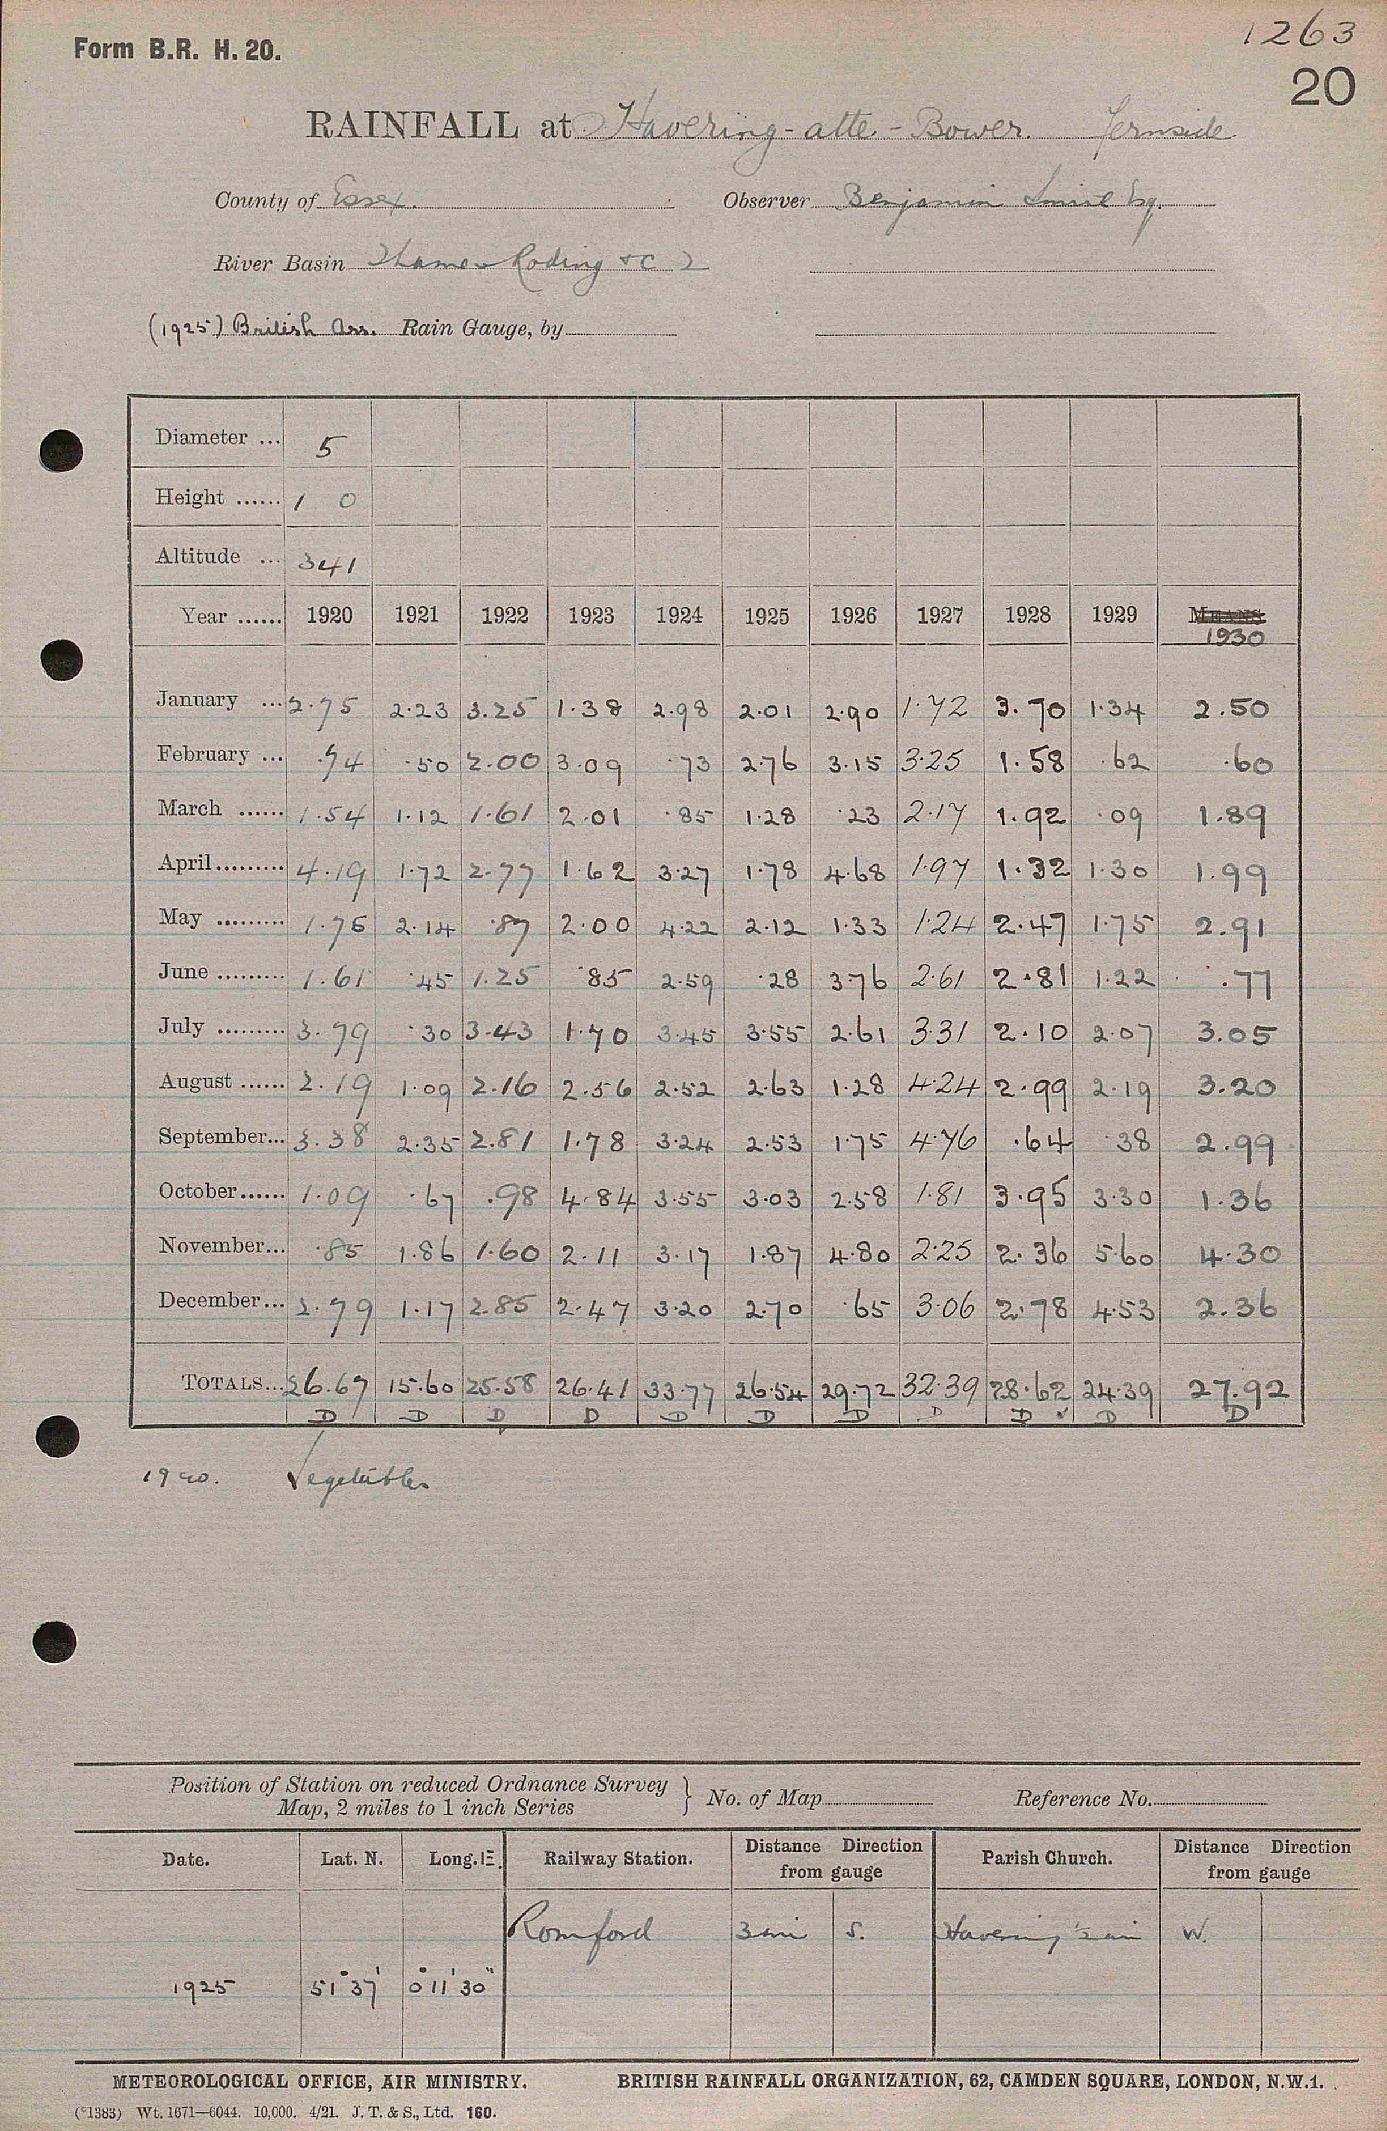 1263
Form B.R. H. 20.
20
RAINFALL at Havering-atte-Bower. Fernside
County of Essex. Observer Benjamin Esq.
River Basin Thames Roding &c 2
(1925) British Ass. Rain Gauge, by
Diameter ... 5
Height ...... 1 0
Altitude ... 341
Year ...... 1920 1921 1922 1923 1924 1925 1926 1927 1928 1929 MEANS 1930
January ... 2.75 2.23 3.25 1.38 2.98 2.01 2.90 1.72 3.70 1.34 2.50
February ... .74 .50 2.00 3.09 .73 2.76 3.15 3.25 1.58 .62 .60
March ...... 1.54 1.12 1.61 2.01 .85 1.28 .23 2.17 1.92 .09 1.89
April ......... 4.19 1.72 2.77 1.62 3.27 1.78 4.68 1.97 1.32 1.30 1.99
May ......... 1.75 2.14 .87 2.00 4.22 2.12 1.33 1.24 2.47 1.75 2.91
June ......... 1.61 .45 1.25 .85 2.59 .28 3.76 2.61 2.81 1.22 .77
July ......... 3.79 .30 3.43 1.70 3.45 3.55 2.61 3.31 2.10 2.07 3.05
August ...... 2.19 1.09 2.16 2.56 2.52 2.63 1.28 4.24 2.99 2.19 3.20
September... 3.38 2.35 2.81 1.78 3.24 2.53 1.75 4.76 .64 .38 2.99
October...... 1.09 .67 .98 4.84 3.55 3.03 2.58 1.81 3.95 3.30 1.36
November... .85 1.86 1.60 2.11 3.17 1.87 4.80 2.25 2.36 5.60 4.30
December... 2.79 1.17 2.85 2.47 3.20 2.70 .65 3.06 2.78 4.53 2.36
TOTALS... 26.67 15.60 25.58 26.41 33.77 26.54 29.72 32.39 28.62 24.39 27.92
D D D D D D D D D ✓ D D
1920. Vegetables
Position of Station on reduced Ordnance Survey } No. of Map Reference No.
Map, 2 miles to 1 inch Series
Date. Lat. N. Long. E. Railway Station. Distance Direction from gauge Parish Church. Distance Direction from gauge
Romford 3 mi S. Havering ½ mi W.
1925 51° 37' 0° 11' 30"
METEOROLOGICAL OFFICE, AIR MINISTRY. BRITISH RAINFALL ORGANIZATION, 62, CAMDEN SQUARE, LONDON, N.W.1.
(*1383) Wt. 1671—6044. 10,000. 4/21. J. T. & S., Ltd. 160.